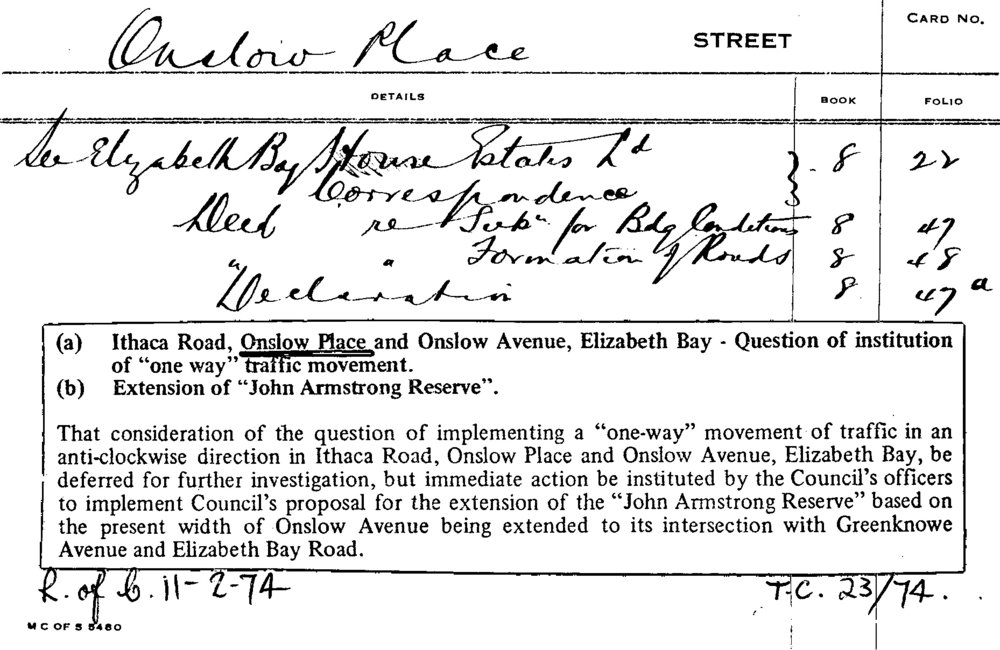 CARD NO.
Onslow Place STREET
DETAILS BOOK FOLIO
See Elizabeth Bay House Estates Ld 8 22
Correspondence
Deed re Subn for Bdg Conditions 8 47
" " Formation of Roads 8 48
Declaration 8 47a
(a) Ithaca Road, Onslow Place and Onslow Avenue, Elizabeth Bay - Question of institution
of “one way” traffic movement.
(b) Extension of “John Armstrong Reserve”.
That consideration of the question of implementing a “one-way” movement of traffic in an
anti-clockwise direction in Ithaca Road, Onslow Place and Onslow Avenue, Elizabeth Bay, be
deferred for further investigation, but immediate action be instituted by the Council’s officers
to implement Council’s proposal for the extension of the “John Armstrong Reserve” based on
the present width of Onslow Avenue being extended to its intersection with Greenknowe
Avenue and Elizabeth Bay Road.
R. of C. 11-2-74 T.C. 23/74.
M C OF S 5480